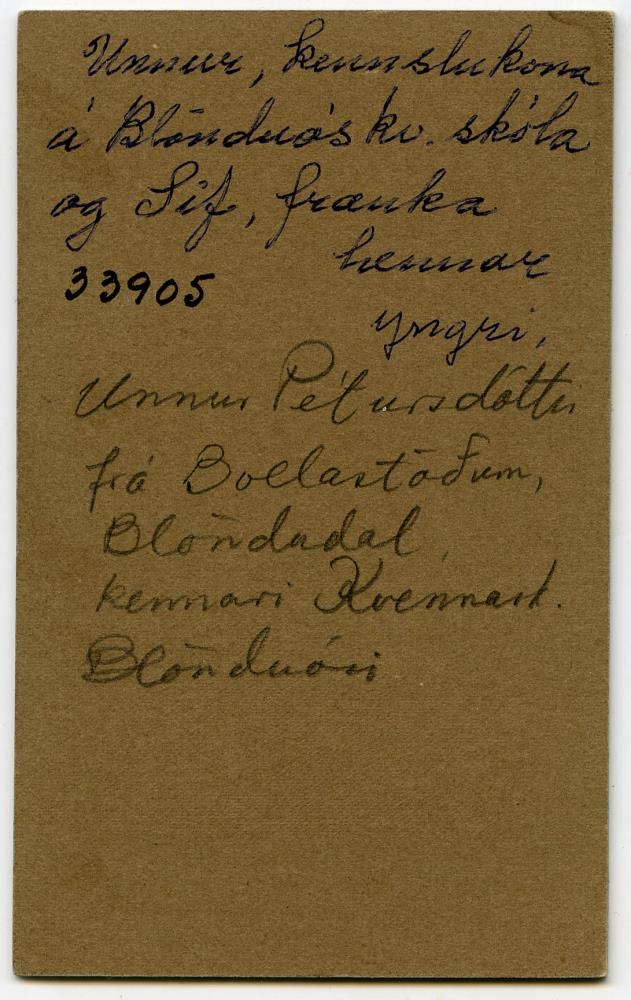 Unnur, kennslukona
á Blönduós kv. skóla
og Sif, frænka
hennar
33905
yngri,
Unnur Pétursdóttir
frá Bollastöðum,
Blöndudal,
kennari Kvennask.
Blönduósi